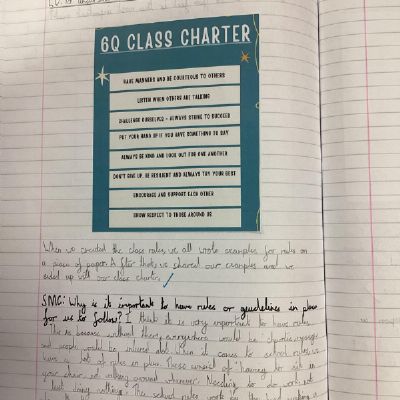 6Q CLASS CHARTER
HAVE MANNERS AND BE COURTEOUS TO OTHERS
LISTEN WHEN OTHERS ARE TALKING
CHALLENGE OURSELVES - ALWAYS STRIVE TO SUCCEED
PUT YOUR HAND UP IF YOU HAVE SOMETHING TO SAY
ALWAYS BE KIND AND LOOK OUT FOR ONE ANOTHER
DON'T GIVE UP, BE RESILIENT AND ALWAYS TRY YOUR BEST
ENCOURAGE AND SUPPORT EACH OTHER
SHOW RESPECT TO THOSE AROUND US
When we created the class rules, we all wrote examples for rules on
a piece of paper. After that, we shared our examples and we
ended up with our class charter.
SMC: Why is it important to have rules or guidelines in place
for us to follow? I think it is very important to have rules.
This is because without them, everywhere would be
and people would be injured. When it comes to school rules, we
have a lot of rules in place. These consist of: having to sit in
your chair, not walking around whenever. Needing to do work not
just doing nothing. The school rules work